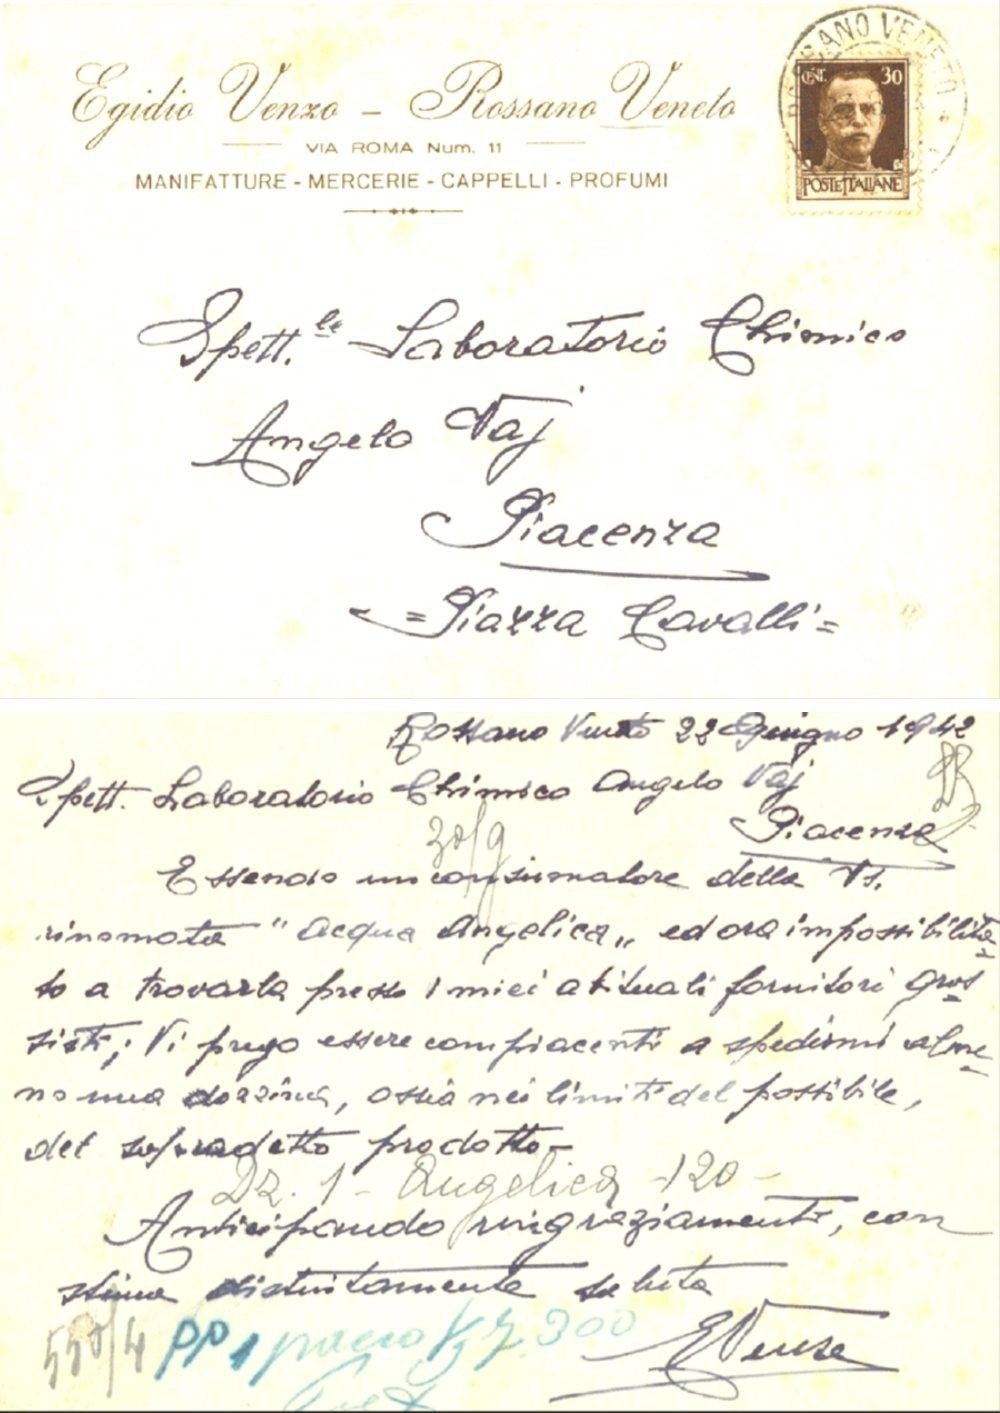 Egidio Venzo - Rossano Veneto
VIA ROMA Num. 11
MANIFATTURE - MERCERIE - CAPPELLI - PROFUMI
ROSSANO VENETO
CENT. 30
POSTE ITALIANE
Spett.le Laboratorio Chimico
Angelo Vaj
Piacenza
=Piazza Cavalli=
Rossano Veneto 22 Giugno 1942
Spett. Laboratorio Chimico Angelo Vaj
Piacenza
30/9
Essendo un consumatore della Vs.
rinomata "Acqua Angelica„ ed ora impossibilita-
to a trovarla presso i miei abituali fornitori gros-
sisti; Vi prego essere compiacenti a spedirmi alme-
no una dozzina, ossia nei limiti del possibile,
del sopradetto prodotto-
Dz. 1 - Angelica -120-
Anticipando ringraziamenti, con
stima distintamente saluta
550/4 PP 1 pacco Kg 7.300
EVenzo